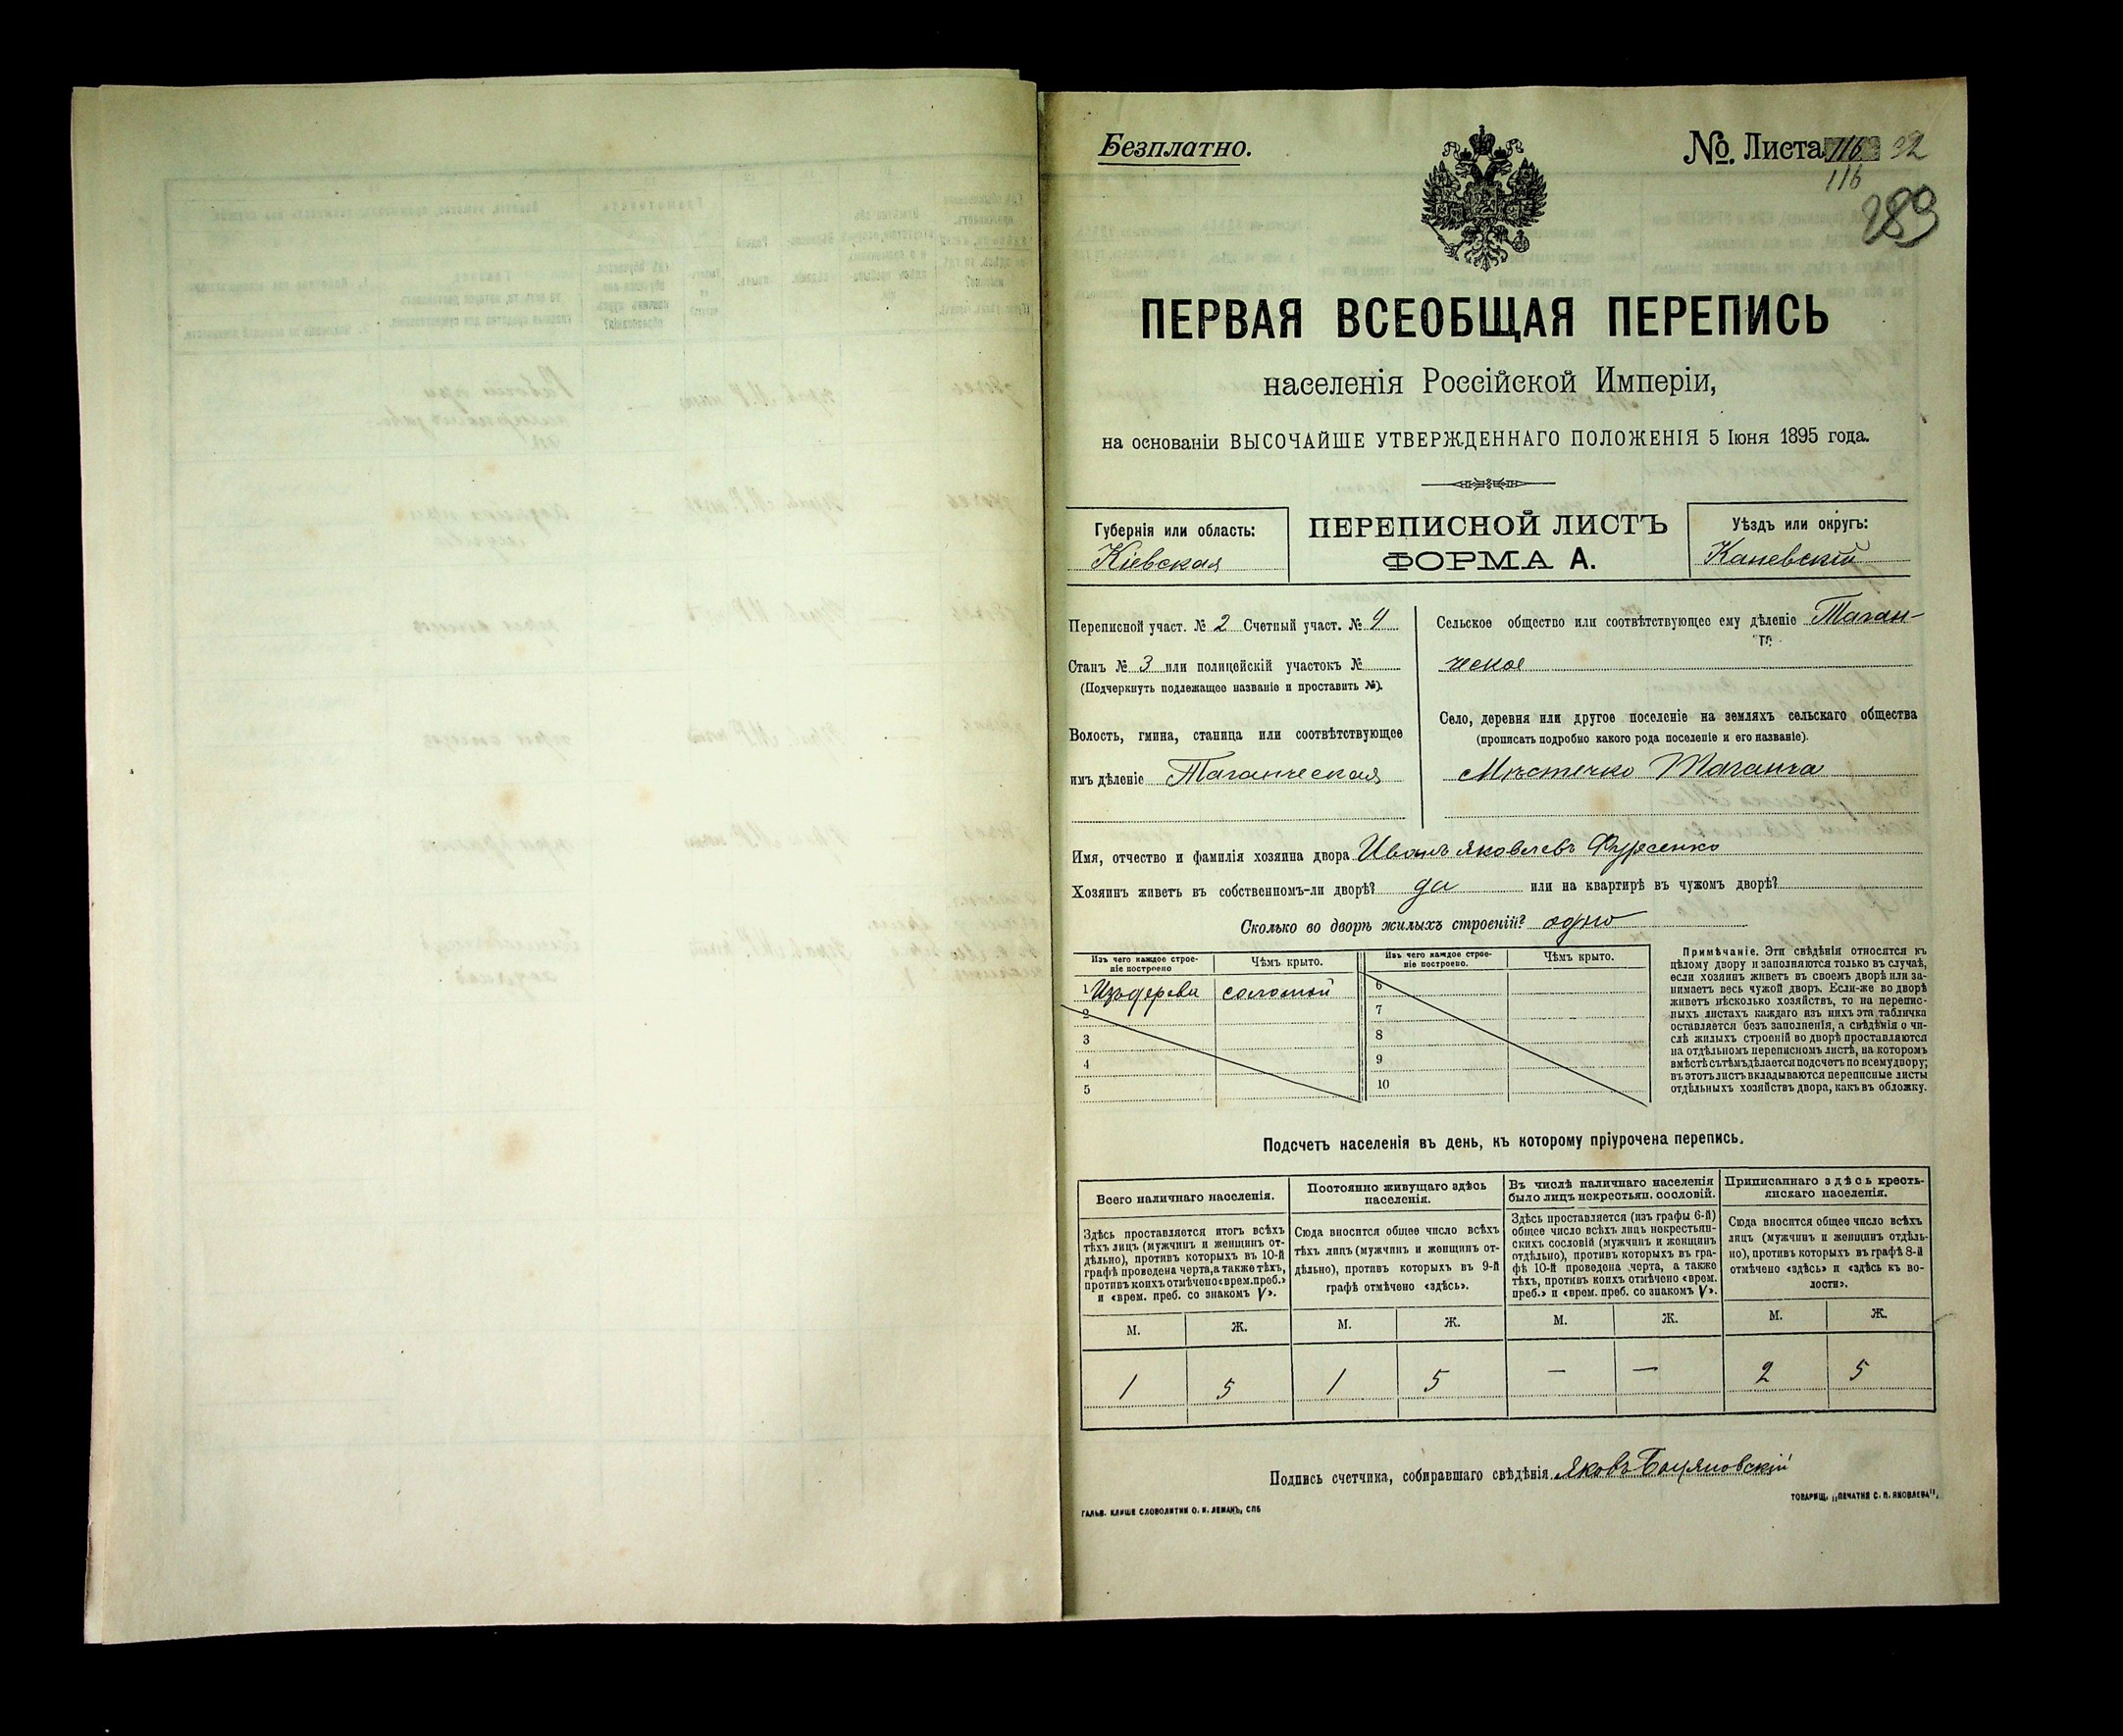 Безплатно.
№. Листа 116 92
116
289
ПЕРВАЯ ВСЕОБЩАЯ ПЕРЕПИСЬ
населенія Россійской Имперіи,
на основаніи ВЫСОЧАЙШЕ УТВЕРЖДЕННАГО ПОЛОЖЕНІЯ 5 Іюня 1895 года.
Губернія или область:
Кіевская
ПЕРЕПИСНОЙ ЛИСТЪ
ФОРМА А.
Уѣздъ или округъ:
Каневскій
Переписной участ. № 2 Счетный участ. № 4
Станъ № 3 или полицейскій участокъ №
(Подчеркнуть подлежащее названіе и проставить №).
Волость, гмина, станица или соотвѣтствующее
имъ дѣленіе Таганческая
Сельское общество или соотвѣтствующее ему дѣленіе Таган-
ческое
Село, деревня или другое поселеніе на земляхъ сельскаго общества
(прописать подробно какого рода поселеніе и его названіе).
Мѣстечко Таганча
Имя, отчество и фамилія хозяина двора Иванъ Яковлевъ Фурсенко
Хозяинъ живетъ въ собственномъ-ли дворѣ? да или на квартирѣ въ чужомъ дворѣ?
Сколько во дворѣ жилыхъ строеній? одно
Изъ чего каждое строе-
ніе построено
Чѣмъ крыто.
Изъ чего каждое строе-
ніе построено.
Чѣмъ крыто.
1 Изъ дерева соломой
2
3
4
5
6
7
8
9
10
Примѣчаніе. Эти свѣдѣнія относятся къ
цѣлому двору и заполняются только въ случаѣ,
если хозяинъ живетъ въ своемъ дворѣ или за-
нимаетъ весь чужой дворъ. Если-же во дворѣ
живетъ нѣсколько хозяйствъ, то на перепис-
ныхъ листахъ каждаго изъ нихъ эта табличка
оставляется безъ заполненія, а свѣдѣнія о чи-
слѣ жилыхъ строеній во дворѣ проставляются
на отдѣльномъ переписномъ листѣ, на которомъ
вмѣстѣ съ тѣмъ дѣлается подсчетъ по всему двору;
въ этотъ листъ вкладываются переписные листы
отдѣльныхъ хозяйствъ двора, какъ въ обложку.
Подсчетъ населенія въ день, къ которому пріурочена перепись.
Всего наличнаго населенія.
Здѣсь проставляется итогъ всѣхъ
тѣхъ лицъ (мужчинъ и женщинъ от-
дѣльно), противъ которыхъ въ 10-й
графѣ проведена черта, а также тѣхъ,
противъ коихъ отмѣчено «врем. преб.»
и «врем. преб. со знакомъ V».
Постоянно живущаго здѣсь
населенія.
Сюда вносится общее число всѣхъ
тѣхъ лицъ (мужчинъ и женщинъ от-
дѣльно), противъ которыхъ въ 9-й
графѣ отмѣчено «здѣсь».
Въ числѣ наличнаго населенія
было лицъ некрестьян. сословій.
Здѣсь проставляется (изъ графы 6-й)
общее число всѣхъ лицъ некрестьян-
скихъ сословій (мужчинъ и женщинъ
отдѣльно), противъ которыхъ въ гра-
фѣ 10-й проведена черта, а также
тѣхъ, противъ коихъ отмѣчено «врем.
преб.» и «врем. преб. со знакомъ V».
Приписаннаго здѣсь кресть-
янскаго населенія.
Сюда вносится общее число всѣхъ
лицъ (мужчинъ и женщинъ отдѣль-
но), противъ которыхъ въ графѣ 8-й
отмѣчено «здѣсь» и «здѣсь къ во-
лости».
М. Ж. М. Ж. М. Ж. М. Ж.
1 5 1 5 — — 2 5
Подпись счетчика, собиравшаго свѣдѣнія Яковъ
ГАЛЬВ. КЛИШЕ СЛОВОЛИТНИ О. И. ЛЕМАНЪ, СПБ
ТОВАРИЩ. „ПЕЧАТНЯ С. П. ЯКОВЛЕВА".